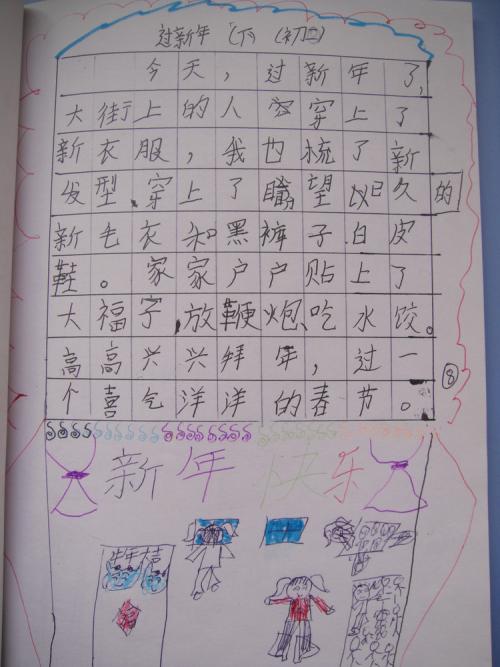 过新年(下)(初二)
今天，过新年了，
大街上的人穿上了
新衣服，我也梳了新
发型、穿上了瞩望以已久的
新毛衣和黑裤子、白皮
鞋。家家户户贴上了
大福字、放鞭炮、吃水饺。
高高兴兴拜年，过一
个喜气洋洋的春节。
8
新年快乐
牛年大吉